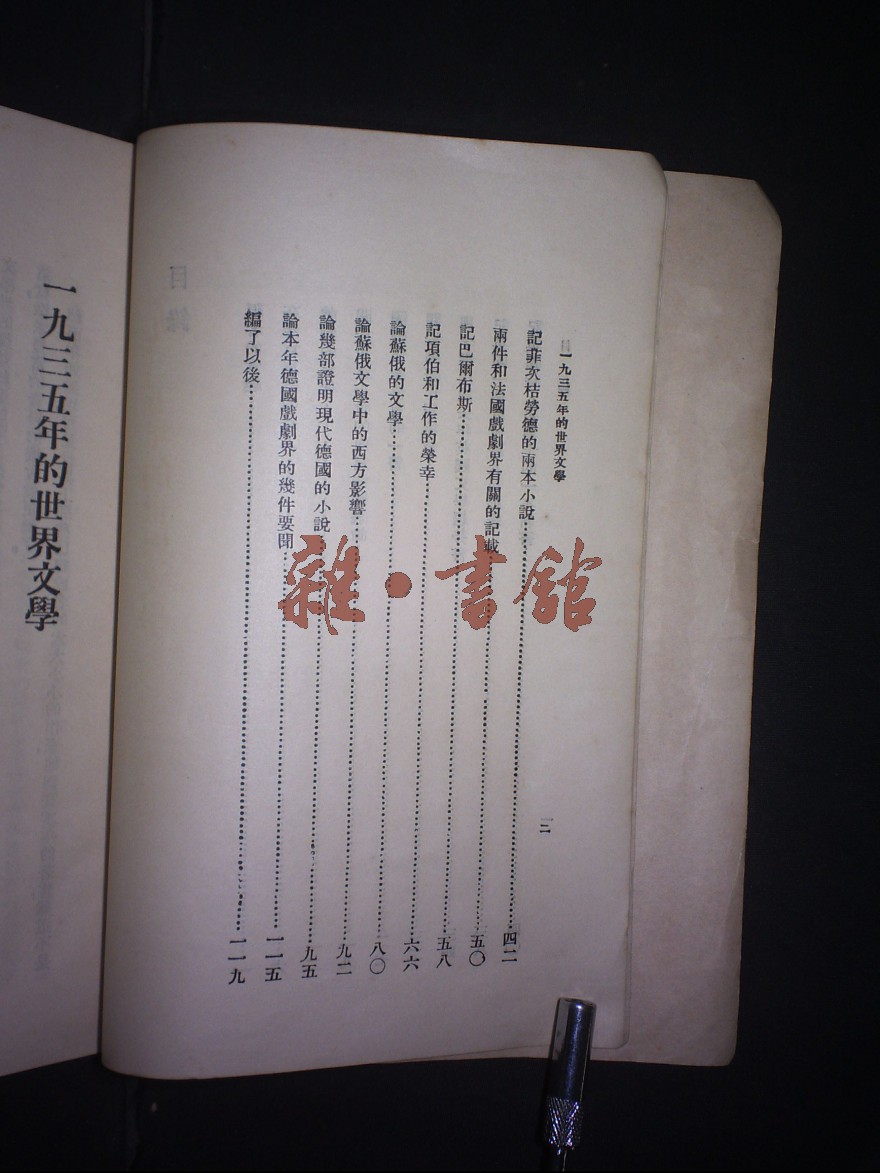 一九三五年的世界文學
記菲次桔勞德的兩本小說……四二
兩件和法國戲劇界有關的記載……五〇
記巴爾布斯……五八
記項伯和工作的榮幸……六六
論蘇俄的文學……八〇
論蘇俄文學中的西方影響……九二
論幾部證明現代德國的小說……九五
論本年德國戲劇界的幾件要聞……一一五
編了以後……一一九
二
一九三五年的世界文學
雜·書館